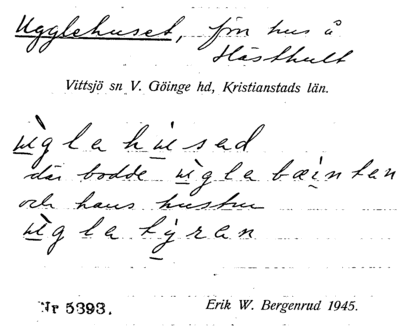 Ugglehuset, fʳⁿ hus å
Hästhult
Vittsjö sn V. Göinge hd, Kristianstads län.
ẁglahu̱sad
där bodde ẁgla bæi̱ntan
och hans hustru
ẁgla ty̱ran
Nr 5393. Erik W. Bergenrud 1945.